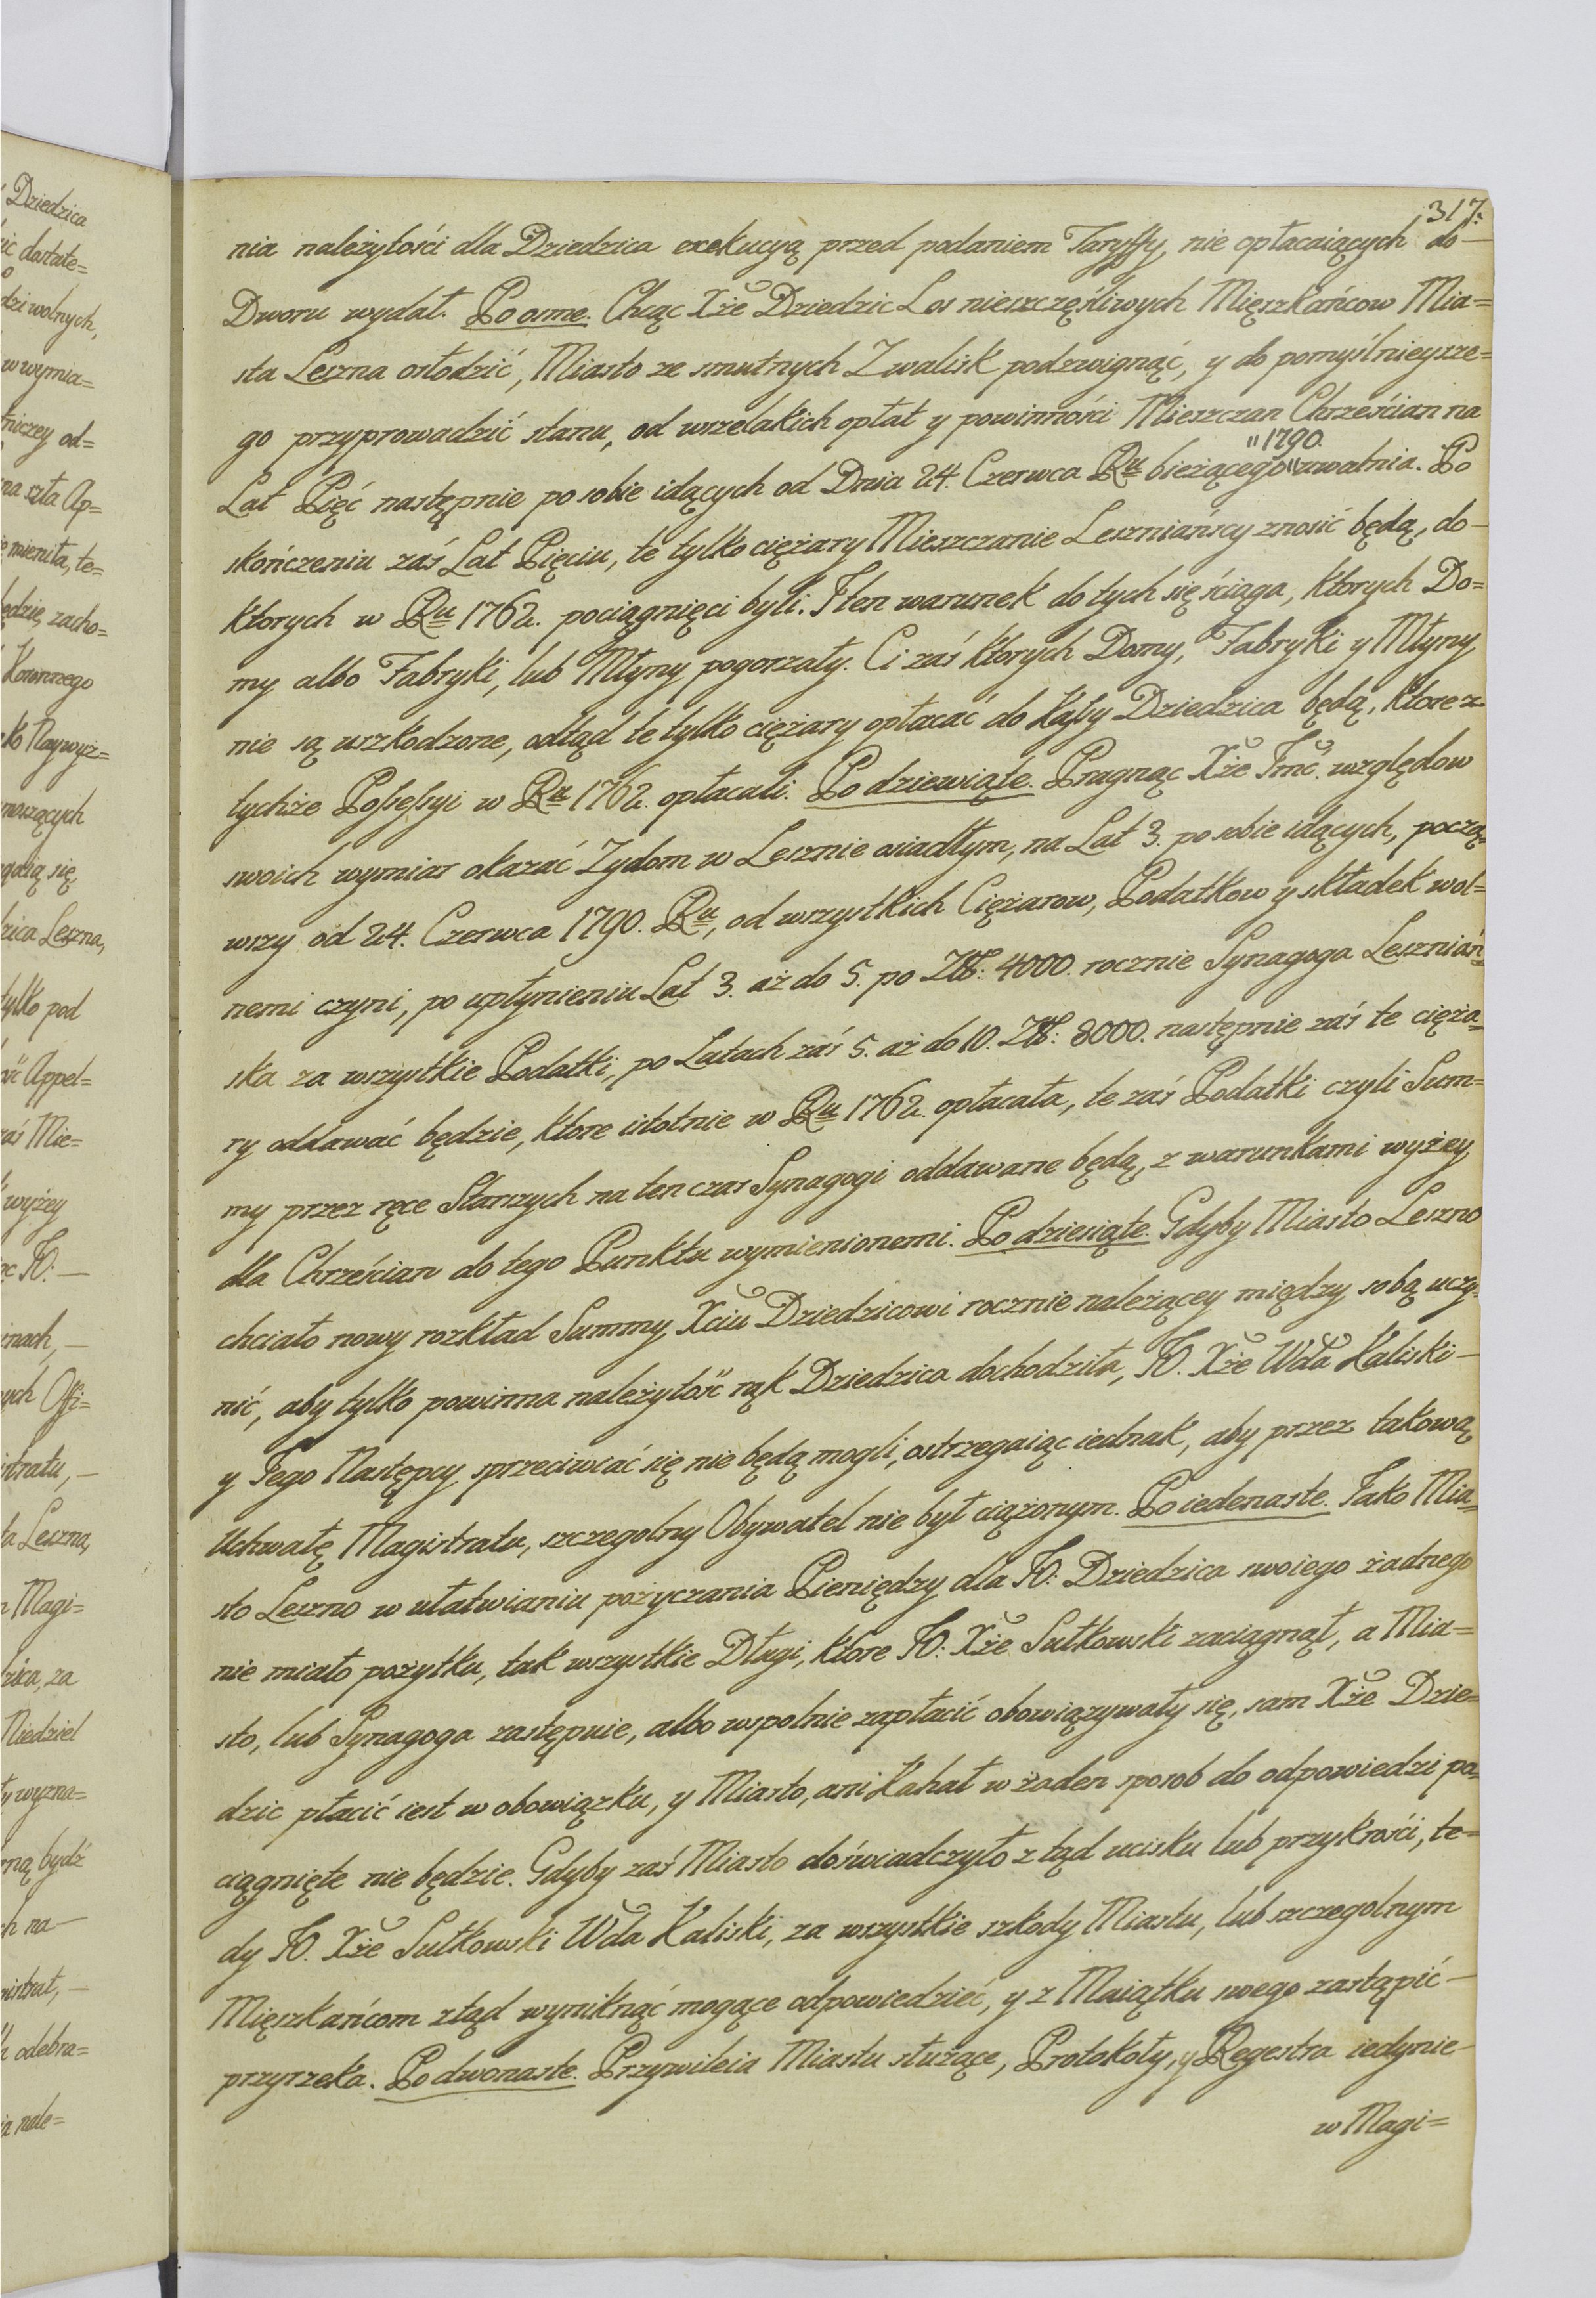 317.
nia należytości dla Dziedzica exekucyą przed podaniem Taryffy, nie opłacaiących do —
Dworu wydał. Po osme. Chcąc Xże Dziedzic Los nieszczęśliwych Mięszkańcow Mia=
sta Leszna osłodzić, Miasto ze smutnych Zwalisk podzwignąć, y do pomyślnieysze=
go przyprowadzić stanu, od wszelakich opłat y powinności Mieszczan Chrześcian na
"1790.
Lat Pięć następnie po sobie idących od Dnia 24. Czerwca Ru bieżącego" uwalnia. Po
skończeniu zaś Lat Pięciu, te tylko ciężary Mieszczanie Leszniańscy znosić będą, do —
ktorych w Ru 1762. pociągnięci byli. Iten warunek do tych się ściąga, ktorych Do=
my albo Fabryki, lub Młyny pogorzały. Ci zaś ktorych Domy, Fabryki y Młyny
nie są uszkodzone, odtąd te tylko ciężary opłacać do Kassy Dziedzica będą, ktore z
tychże Possessyi w Ru 1762. opłacali. Po dziewiąte. Pragnąc Xże Jmć. względow
swoich wymiar okazać Zydom w Lesznie osiadłym, na Lat 3. po sobie idących, począ=
wszy od 24. Czerwca 1790. Ru, od wszystkich Ciężarow, Podatkow y składek wol=
nemi czyni, po upłynieniu Lat 3. aż do 5. po Zł: 4000. rocznie Synagoga Leszniań=
ska za wszystkie Podatki, po Latach zaś 5. aż do 10. Zł: 8000. następnie zaś te cięża=
ry oddawać będzie, ktore istotnie w Ru 1762. opłacała, te zaś Podatki czyli Sum=
my przez ręce Starszych na ten czas Synagogi oddawane będą, z warunkami wyżey
dla Chrześcian do tego Punktu wymienionemi. Po dziesiąte. Gdyby Miasto Leszno
chciało nowy rozkład Summy Xciu Dziedzicowi rocznie należącey między sobą uczy=
nić, aby tylko powinna należytość rąk Dziedzica dochodziła, JO. Xże Wda Kaliski —
y Jego Następcy sprzeciwiać się nie będą mogli, ostrzegaiąc iednak, aby przez takową
Uchwałę Magistratu, szczegolny Obywatel nie był ciążonym. Po iedenaste. Jako Mia=
sto Leszno w ułatwianiu pożyczania Pieniędzy dla JO: Dziedzica swoiego żadnego
nie miało pożytku, tak wszystkie Długi, ktore JO: Xże Sułkowski zaciągnął, a Mia=
sto, lub Synagoga zastępnie, albo wspolnie zapłacić obowiązywały się, sam Xże Dzie=
dzic płacić iest w obowiązku, y Miasto, ani Kahał w żaden sposob do odpowiedzi po=
ciągnięte nie będzie. Gdyby zaś Miasto doświadczyło z tąd ucisku lub przykrości, te=
dy JO. Xże Sułkowski Wda Kaliski, za wszystkie szkody Miastu, lub szczegolnym
Mięszkańcom ztąd wyniknąć mogące odpowiedzieć, y z Maiątku swego zastąpić —
przyrzeka. Po dwonaste. Przywileia Miastu służące, Protokoły, y Regestra iedynie
w Magi=